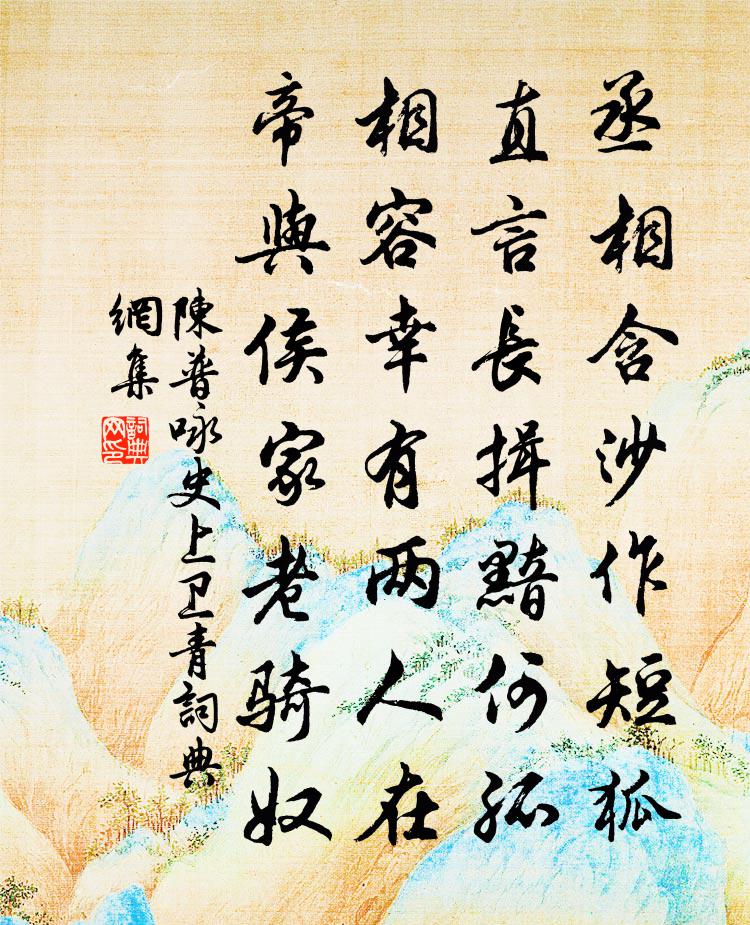 丞相含沙作短狐
直言長揖黯何孤
相容幸有两人在
帝與侯家老骑奴
陳普咏史上卫青詞典
網集
詞典
网印